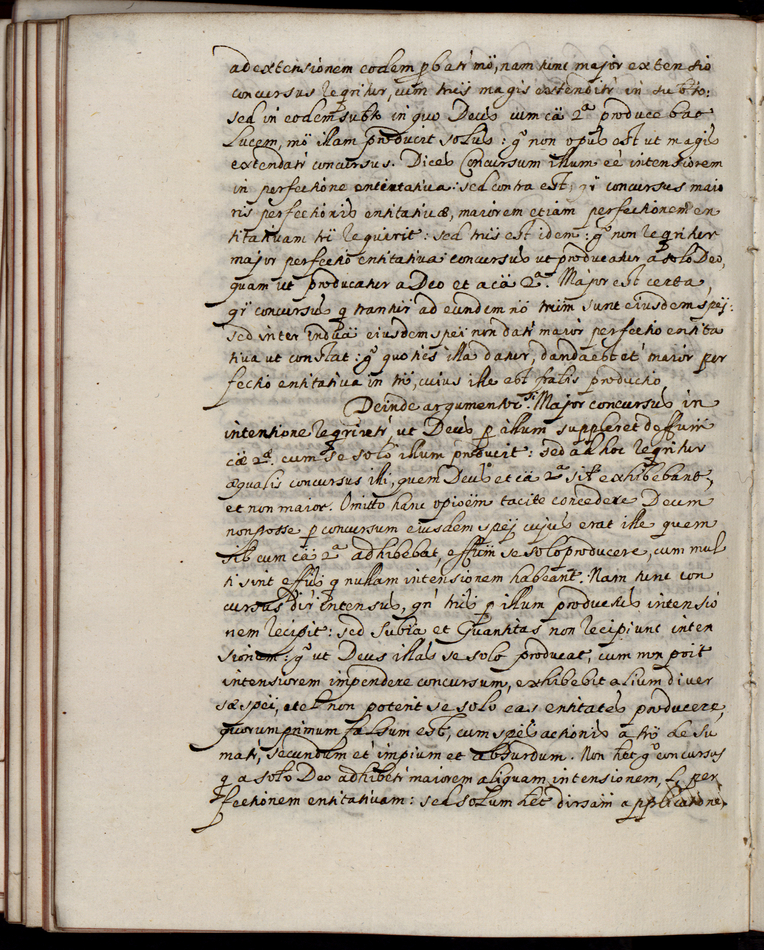 ad extensionem eodem pbatr mõ, nam tunc major extensio
concursus reqritur, cum trüs magis extenditr in subto:
sed in eodem subto in quo Deus cum cä 2ª producebat
Lucem, mö illam producit solus: gº non opus est ut magis
extendatr concursus. Dices Concursum illum eé intensiorem
in perfectione entitativa: sed contra est, qï concursus maio
ris perfectionis entitativæ, maiorem etiam perfectionem en
titativam trï requirit: sed trüs est idem: gº non reqritur
major perfectio entitativa concursus ut producatur a solo Deo,
quam ut producatur a Deo et a cä 2ª. Major est certa,
qï concursus q trantur ad eundem nö trüm sunt eiusdem speij:
sed inter indüa eiusdem spei non datr maior perfectio entita
tiva ut constat: gº quoties illa datur, danda est et maior per
fectio entitativa in trö, cuius ille est fralis productio
Deinde argumentor si Major concursus in
intensione reqriretr, ut Deus p illum suppleret deffum
cæ 2ª. cum se solo illum producit: sed ad hoc reqritur
æqualis concursus illi, quem Deus et cä 2ª sil exhibebant,
et non maior. Omitto hanc opioëm tacite concedere Deum
non posse p concursum eiusdem speij cujus erat ille quem
sil cum cä 2ª adhibebat, effum se solo producere, cum mul
ti sint effus q nullam intensionem habeant. Nam tunc con
cursus dir intensus, qn trüs p illum productus intensio
nem recipit: sed Subïa et Quantitas non recipiunt inten
sionem: gº ut Deus illas se solo producat, cum non poit
intensiorem impendere concursum, exhibebit alium diver
sæ spei, et el non poterit se solo eas entitates producere,
quorum primum falsum est, cum spës actionis a trö desu
matr, secundum et impium et absurdum. Non het gº concursus
q a solo Deo adhibetr maiorem aliquam intensionem, l per
fectionem entitativam: sed solum het diversam applicationë